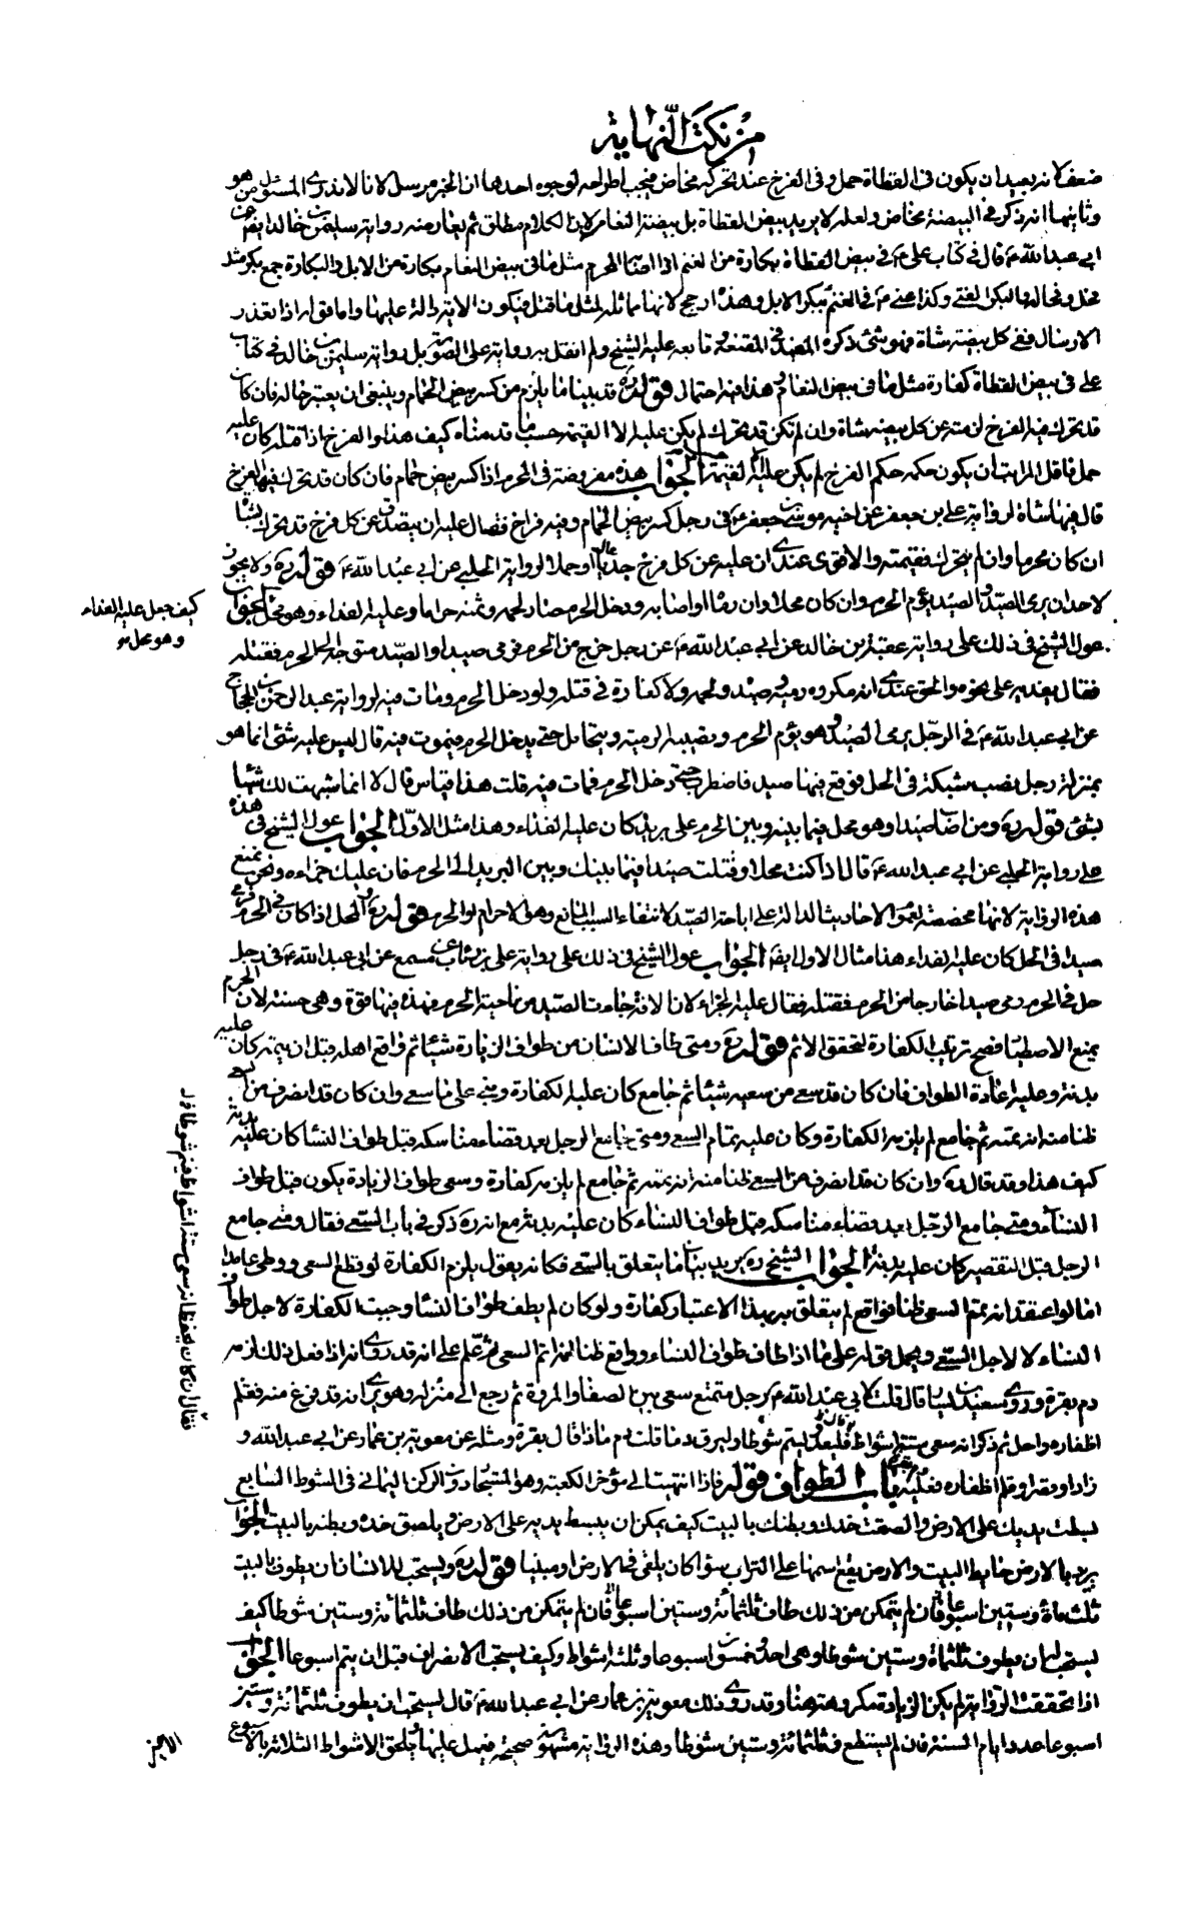 من نكت النهاية
ضعف لانه بعيد ان يكون في القطاة حمل وفي الفرخ عند تحركه مخاض فيجب اطراحه لوجوه احدها ان الخبر مرسل لانا لا ندري المسئول من هو
وثانيها انه ذكر في البيضة مخاض ولعله لا يريد بيض القطاة بل بيضة النعام لان الكلام مطلق ثم يعارضه رواية سليمان بن خالد ايضا عن
ابي عبد الله ع قال في كتاب علي ع في بيض القطاة بكارة من الغنم اذا اصابه المحرم مثل ما في بيض النعام بكارة من الابل والبكارة جمع بكر مثل
فحل وفحالة والبكر الفتى وكذا عنى ع في الغنم ببكر الابل وهذا ارجح لانها مماثلة لمثل ما قتل فيكون الاية دالة عليها واما قوله اذا تعذر
الارسال ففي كل بيضة شاة فهو شئ ذكره المفيد في المقنعة وتابعه عليه الشيخ ولم انقل به رواية على الصورة بل رواية سليمان بن خالد في كتاب
علي في بيض القطاة كفارة مثل ما في بيض النعام وهذا فيه احتمال قوله ره قد بينا ما يلزم من كسر بيض الحمام وينبغي ان يعتبر حاله فان كان
قد تحرك فيه الفرخ لزمه عن كل بيضة شاة وان لم تكن قد تحرك لم يكن عليه الا القيمة حسب ما قدمناه كيف هذا والفرخ اذا قتله كان عليه
حمل فاقل المراتب ان يكون حكمه حكم الفرخ لم يكن عليه الا القيمة الجواب هذه مفروضة في المحرم اذا كسر بيض حمام فان كان قد تحرك فيها الفرخ
قال فيها شاة لرواية علي بن جعفر عن اخيه موسى بن جعفر ع في رجل كسر بيض الحمام وفيه فراخ فقال عليه ان يتصدق عن كل فرخ قد تحرك بشاة
ان كان محرما وان لم يتحرك فقيمته والاقوى عندي ان عليه عن كل فرخ جديا او حملا لرواية الحلبي عن ابي عبد الله ع قوله ره ولا يجوز
لاحد ان يرمى الصيد والصيد يؤم الحرم وان كان محلا وان رماه او اصابه ودخل الحرم صار لحمه وثمنه حراما وعليه الفداء وهو محل الجواب
عول الشيخ في ذلك على رواية عقبة بن خالد عن ابي عبد الله ع عن رجل خرج من الحرم فرمى صيدا والصيد متوجه الى الحرم فقتله
فقال يفديه على نحوه والحق عندي انه مكروه رميه وصيده ولحمه ولا كفارة في قتله ولو دخل الحرم ومات فيه لرواية عبد الرحمن بن الحجاج
عن ابي عبد الله ع في الرجل يرمى الصيد وهو يؤم الحرم وتصيبه الرمية ويتحامل حتى يدخل الحرم فيموت فيه قال ليس عليه شئ انما هو
بمنزلة رجل نصب شبكة في الحل فوقع فيها صيد فاضطرب حتى دخل الحرم فمات فيه قلت هذا قياس قال لا انما شبهت لك شيئا
بشئ قوله ره ومن اصاب صيدا وهو محل فيما بينه وبين الحرم على بريد كان عليه الفداء وهذا مثل الاول الجواب عول الشيخ في هذه
على رواية الحلبي عن ابي عبد الله ع قال اذا كنت محلا وقتلت صيدا فيما بينك وبين البريد الى الحرم فان عليك جزاءه ونحن نمنع
هذه الرواية لانها مخصصة لعموم الاحاديث الدالة على اباحة الصيد لانتفاء السبب المانع وهو الاحرام او الحرم قوله ره والمحل اذا كان في الحرم فرمى
صيدا في الحل كان عليه الفداء هذا مثال الاول ايضا الجواب عول الشيخ في ذلك على رواية علي بن رئاب عن مسمع عن ابي عبد الله ع في رجل
حل في الحرم رمى صيدا خارجا من الحرم فقتله فقال عليه الجزاء لان الافة جاءت الصيد من ناحية الحرم فهذه فيها قوة وهي حسنة لان الحرم
يمنع الاصطياد فصح ترتب الكفارة لتحقق الاثم قوله ره ومتى طاف الانسان من طواف الزيارة شيئا ثم واقع اهله قبل ان يتمه كان عليه
بدنة وعليه اعادة الطواف فان كان قد سعى من سعيه شيئا ثم جامع كان عليه الكفارة ويبني على ما سعى وان كان قد انصرف من السعي
ظنا منه انه تممه ثم جامع لم يلزمه الكفارة وكان عليه تمام السعي ومتى جامع الرجل بعد قضاء مناسكه قبل طواف النساء كان عليه بدنة
كيف هذا وقد قال ره وان كان قد انصرف من السعي ظنا منه انه تممه ثم جامع لم يلزمه كفارة وسعى طواف الزيارة يكون قبل طواف
النساء ومتى جامع الرجل بعد قضاء مناسكه قبل طواف النساء كان عليه بدنة مع انه ره ذكر في باب السعي فقال ومتى جامع
الرجل قبل التقصير كان عليه بدنة الجواب الشيخ ره يريد بيان ما يتعلق بالسعي فكانه يقول يلزم الكفارة لو قطع السعي ووطى عامدا
اما لو اعتقد انه تمم السعي ظنا فواقع لم يتعلق به بهذا الاعتبار كفارة ولو كان لم يطف طواف النساء وجبت الكفارة لاجل طواف
النساء لا لاجل السعي ويحمل قوله على ما اذا طاف طواف النساء وواقع ظنا انه اتم السعي على انه قد روى انه اذا فعل ذلك لزمه
دم بقرة وروى سعيد بن يسار قال قلت لابي عبد الله ع رجل متمتع سعى بين الصفا والمروة ثم رجع الى منزله وهو يرى انه قد فرغ منه فقلم
اظفاره واحل ثم ذكر انه سعى ستة اشواط فليعد وليتم شوطا وليرق دما قلت دم ماذا قال بقرة ومثله عن معوية بن عمار عن ابي عبد الله و
زاد او قصر او قلم اظفاره فعليه بقرة باب الطواف قوله فاذا انتهيت الى مؤخر الكعبة وهو المستجار دون الركن اليماني في الشوط السابع
بسطت يديك على الارض والصقت خدك وبطنك بالبيت كيف يمكن ان يبسط يديه على الارض ويلصق خده وبطنه بالبيت الجواب
يريد بالارض حايط البيت والارض يقع اسمها على التراب سواء كان يلقى في الارض او مبنيا قوله ره ويستحب للانسان ان يطوف بالبيت
ثلثماة وستين اسبوعا فان لم يتمكن من ذلك طاف ثلثمائة وستين اسبوعا فان لم يتمكن من ذلك طاف ثلثمائة وستين شوطا كيف
يستحب له ان يطوف ثلثمائة وستين شوطا وهي احد وخمسون اسبوعا وثلثة اشواط وكيف يستحب الانصراف قبل ان يتم اسبوعا الجواب
اذا تحققت الرواية لم يكن الزيادة مكروهة هنا وقد روى ذلك معوية بن عمار عن ابي عبد الله ع قال يستحب ان يطوف ثلثمائة وستين
اسبوعا عدد ايام السنة فان لم يستطع فثلثمائة وستين شوطا وهذه الرواية مشهورة صحيحة فيعمل عليها ويلحق الاشواط الثلاثة بالاسبوع
الاخير
كيف جعل عليه الفداء
وهو محل
فقال ان كان يحفظ انه سعى ستة اشواط